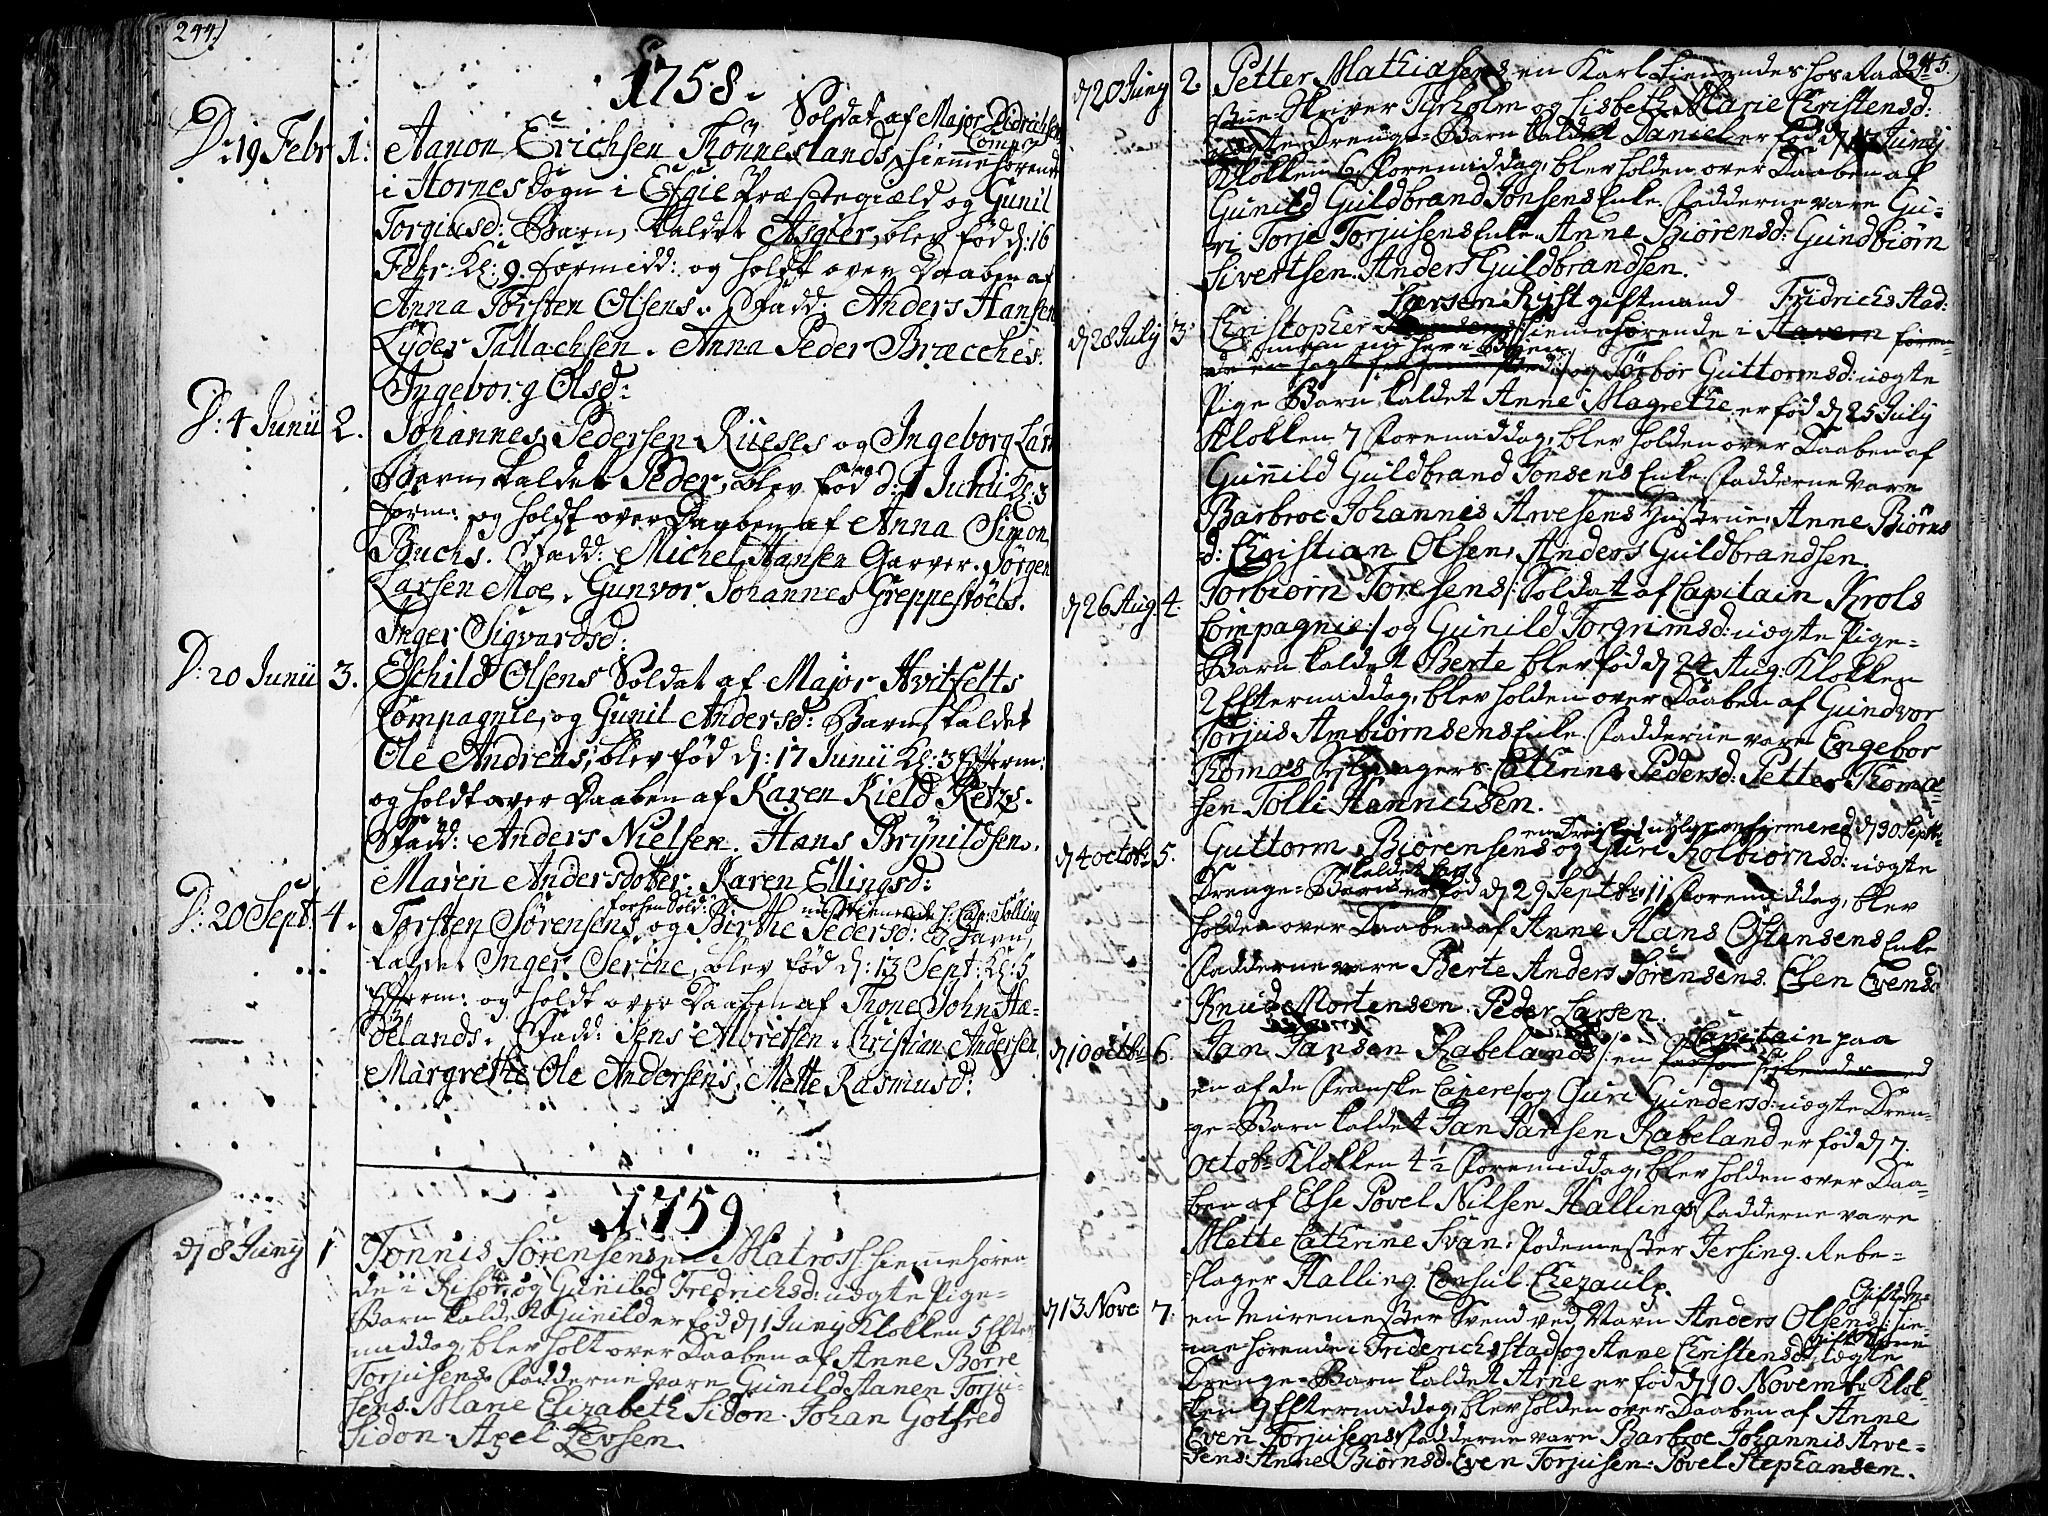 244.)
1758.
Soldat af Major Didrichsens
Comp:
D: 19 Febr 1. Aanon Erichsen Thonneslands, hiemehørende
i Hornes Sogn i Efgie Præstegiæld og Gunil
Torgiusd: Barn, kaldet Asgier, blev fød d: 16
Febr: Kl: 9. formidd: og holdt over Daaben af
Anna Torsten Olsens. Fadd: Anders Hansen
Lyder Tallachsen. Anna Peder Brecches.
Ingeborg Olsd:
D: 4 Junii 2. Johannes Pedersen Rüeses og Ingeborg Lars
Barn kaldet Peder, blev fød d: 1 Junii Kl: 3
form: og holdt over Daaben af Anna Simon
Buchs. Fadd: Michel Hansen Garver. Jørgen
Larsen Moe. Gunvor Johannes Greppestøels.
Inger Sigvardsd:
D: 20 Junii 3. Eschild Olsens Soldat af Major Hvitfelts
Compagnie, og Gunil Andersd: Barn, kaldet
Ole Andreas, blev fød d: 17 Junii Kl: 3 Efterm:
og holdt over Daaben af Karen Kield Retzs.
Fadd: Anders Nielsen. Hans Brynildsen.
Maren Andersdotter. Karen Ellingsd:
forhen Sold: nu tienende h: Cap: Sølling
D: 20 Sept: 4. Torsten Sørensens og Birthe Pedersd: Barn,
kaldet Inger Serine, blev fød d: 13 Sept: Kl: 5
Efterm: og holdt over Daaben af Thone John Hæ-
Øelands. Fadd: Jens Albretsen. Christian Andersen
Margrethe Ole Andersens. Mette Rasmusd:
1759
d 8 Juny 1 Tønnis Sørensens en Matros hiemmehøren
de i Risør, og Gunild Fredrichsd: uægte Pige-
Barn kaldet Gunild er fød d 1 Juny Klokken 5 Efter
middag, blev holt over Daaben af Anne Børre
Torjusens Fadderne vare Gunild Hanen Torju-
sens. Marie Elizabeth Sidon. Johan Gotfred
Sidon. Axel Levsen.
245.
d 20 Juny 2. Petter Mathiasens en Karl tienendes hos Raad-
stue-Skriver Tyrholm og Lisbeth Marie Christensd:
uægte Drenge-Barn kaldet Daniel er fød d 17 Juny
Klokken 6 Formiddag, blev holden over Daaben af
Gunild Guldbrand Jonsens Enke. Fadderne vare Gu-
ri Torje Torjusens Enke. Anne Biørensd: Gundbiørn
Sivertsen. Anders Guldbrandsen.
Larsen Ryst giftmand Fridrichs Stad:
d 28 July 3. Christopher hiemehørende i Havern foren-
og her i Byen
og Torbor Guttormsd: uægte
Pige Barn kaldet Anne Magrethe er fød d 25 July
Klokken 7 Formiddag, blev holden over Daaben af
Gunnild Guldbrand Jonsens Enke. Fadderne vare
Barbroe Johannis Arvesens Hustrue, Anne Biørns
d: Christian Olsen, Anders Guldbrandsen.
d 26 Aug. 4. Torbiørn Toresens /: Soldat af Capitain Krols
Compagnie:/ og Gunild Torgrimsd: uægte Pige-
Barn kaldet Berte blev fød d 24 Aug: Klokken
2 Eftermiddag, blev holden over Daaben af Gundvor
Torjus Ambiørnsens Enke. Fadderne vare Engebor
Thomas Cathrine Pedersd: Petter Thoma-
sen Tolle Hanrichsen.
en Dreng nylig confirmered d 30 Septbr
d 4 octob: 5. Guttorm Biørensens og Guri Kolbiørnsd: uægte
kaldet
Drenge-Barn er fød d 29 Septbr 11 Formiddag, blev
holden over Daaben af Anne Hans Ostensens Enke
Fadderne vare Berte Anders Sørensens. Elen Evensd
Knud Mortensen. Peder Larsen.
Capitain paa
d 10 octbr 6. Jan Jansen Rabelands /: en
en af de Franske Capere/ og Guri Gundersd: uægte Dren-
ge-Barn kaldet Jan Jansen Rabeland er fød d 7.
Octob: Klokken 4½ Formiddag, blev holden over Daa-
ben af Else Povel Nilsen Hallings Fadderne vare
Mette Cathrine Svan. Podemester Jersing. Rebe-
slager Halling. Consul Chezaulp.
Giftm-
d 13 Nove 7. en Muremester Svend ved Navn Anders Olsens: hie-
me hørende i Friderichstad/ og Anne Christensd: uægte
Drenge-Barn kaldet Arne er fød d 10 Novembr Klok-
ken 9 Eftermiddag, blev holden over Daaben af Anne
Even Torjusens. Fadderne vare Barbroe Johannis Arve-
sens. Anne Biørnsd. Even Torjusen. Povel Stephansen.